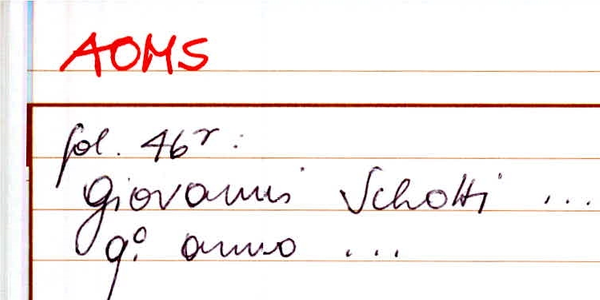 AOMS
fol. 46r:
Giovanni Schotti ...
9º. anno ...